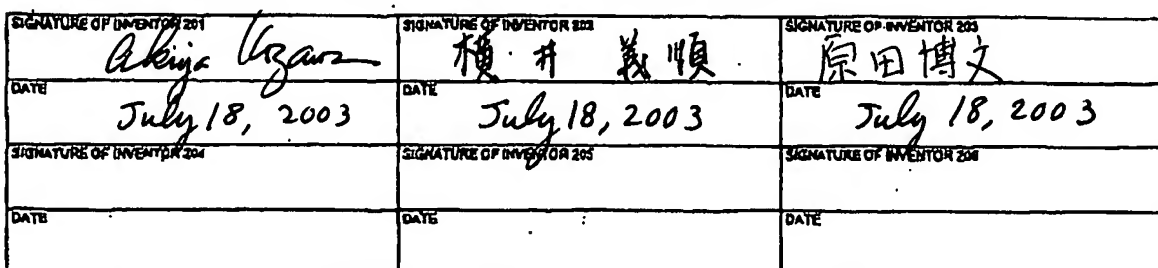 SIGNATURE OF INVENTOR 201 SIGNATURE OF INVENTOR 202 SIGNATURE OF INVENTOR 203
横井 義順 原田博文
DATE DATE DATE
July 18, 2003 July 18, 2003 July 18, 2003
SIGNATURE OF INVENTOR 204 SIGNATURE OF INVENTOR 205 SIGNATURE OF INVENTOR 206
DATE DATE DATE